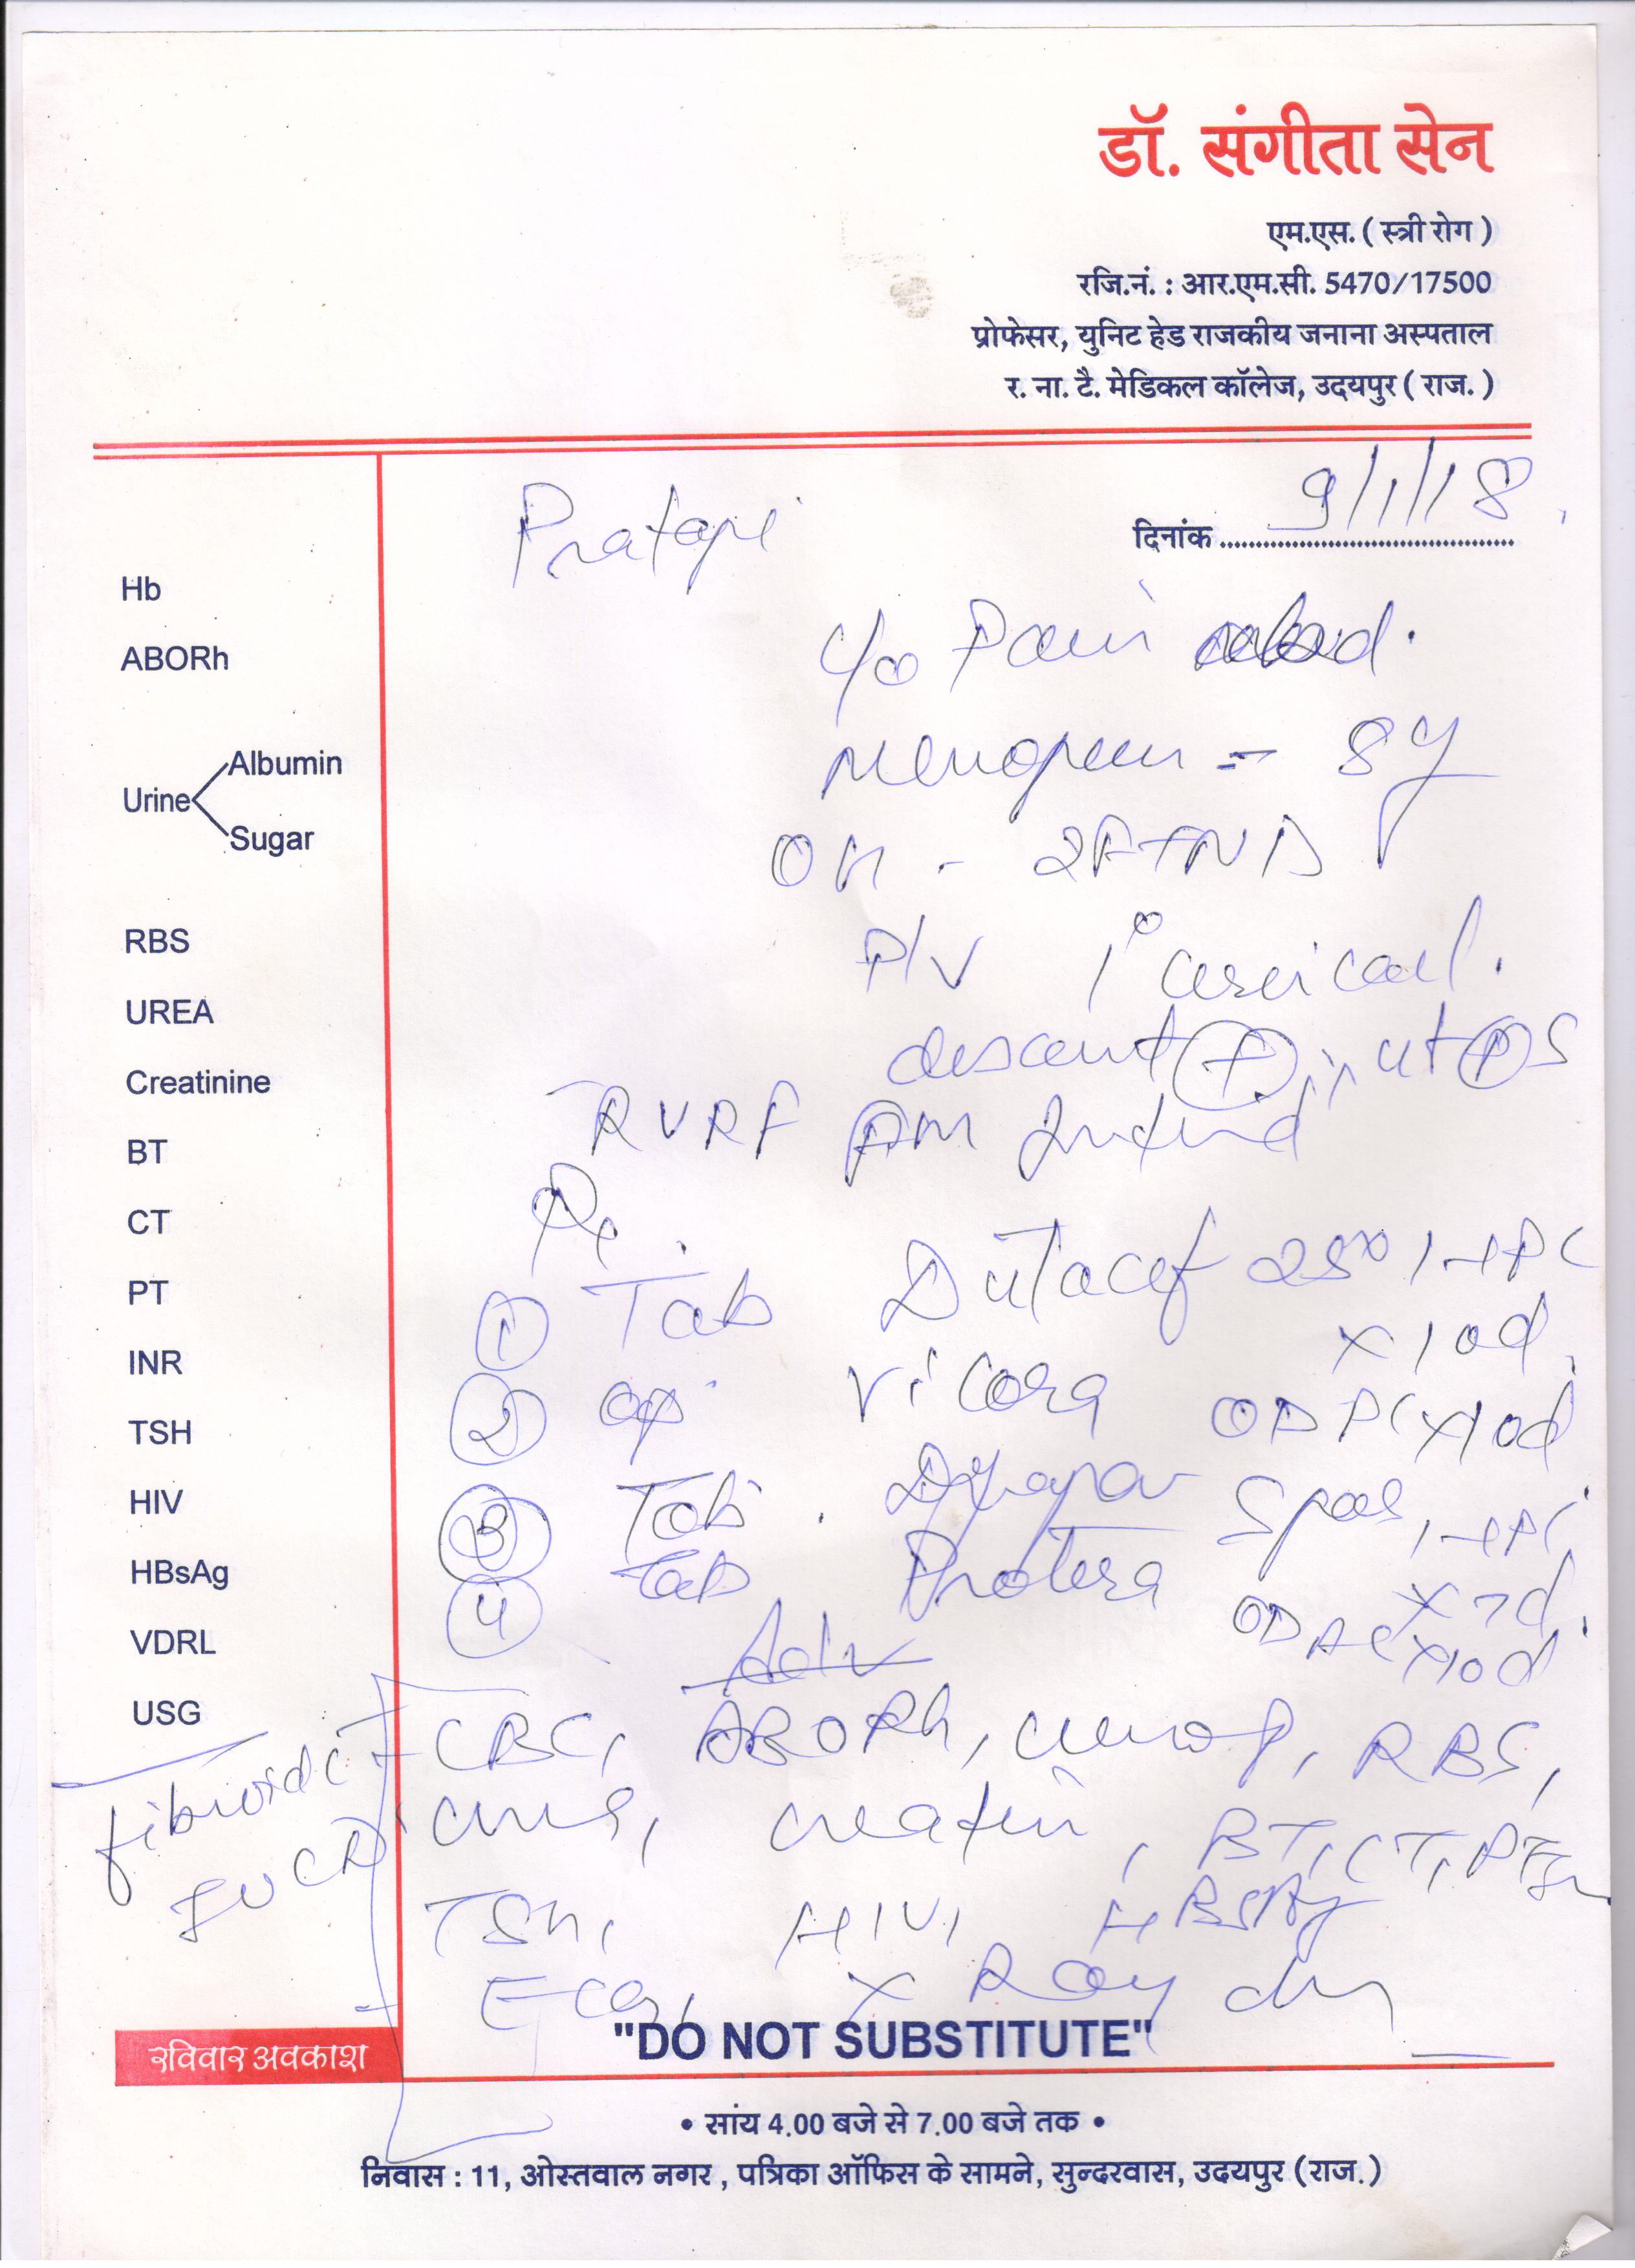 डॉ. संगीता सेन
एम.एस. ( स्त्री रोग )
रजि.नं. : आर.एम.सी. 5470/17500
प्रोफेसर, युनिट हेड राजकीय जनाना अस्पताल
र. ना. टै. मेडिकल कॉलेज, उदयपुर ( राज. )
दिनांक 9/1/18
Hb
ABORh
Urine
Albumin
Sugar
RBS
UREA
Creatinine
BT
CT
PT
INR
TSH
HIV
HBsAg
VDRL
USG
fibroid
c/o Pain
= 8y
OH - 2FTND
P/V 1° cervical.
descent (+)
RVRF
Rx
① Tab 250 1-1 PC
x 10d
② cap Vicora OD PC x 10d
③ Tab. Spas 1-1 PC
x 7d
④ Tab OD AC x 10d
Adv
CBC, ABORh, RBS,
creatin, BT, CT, PT
TSH, HIV, HBsAg
ECG, X Ray
"DO NOT SUBSTITUTE"
रविवार अवकाश
• सांय 4.00 बजे से 7.00 बजे तक •
निवास : 11, ओस्तवाल नगर , पत्रिका ऑफिस के सामने, सुन्दरवास, उदयपुर (राज.)